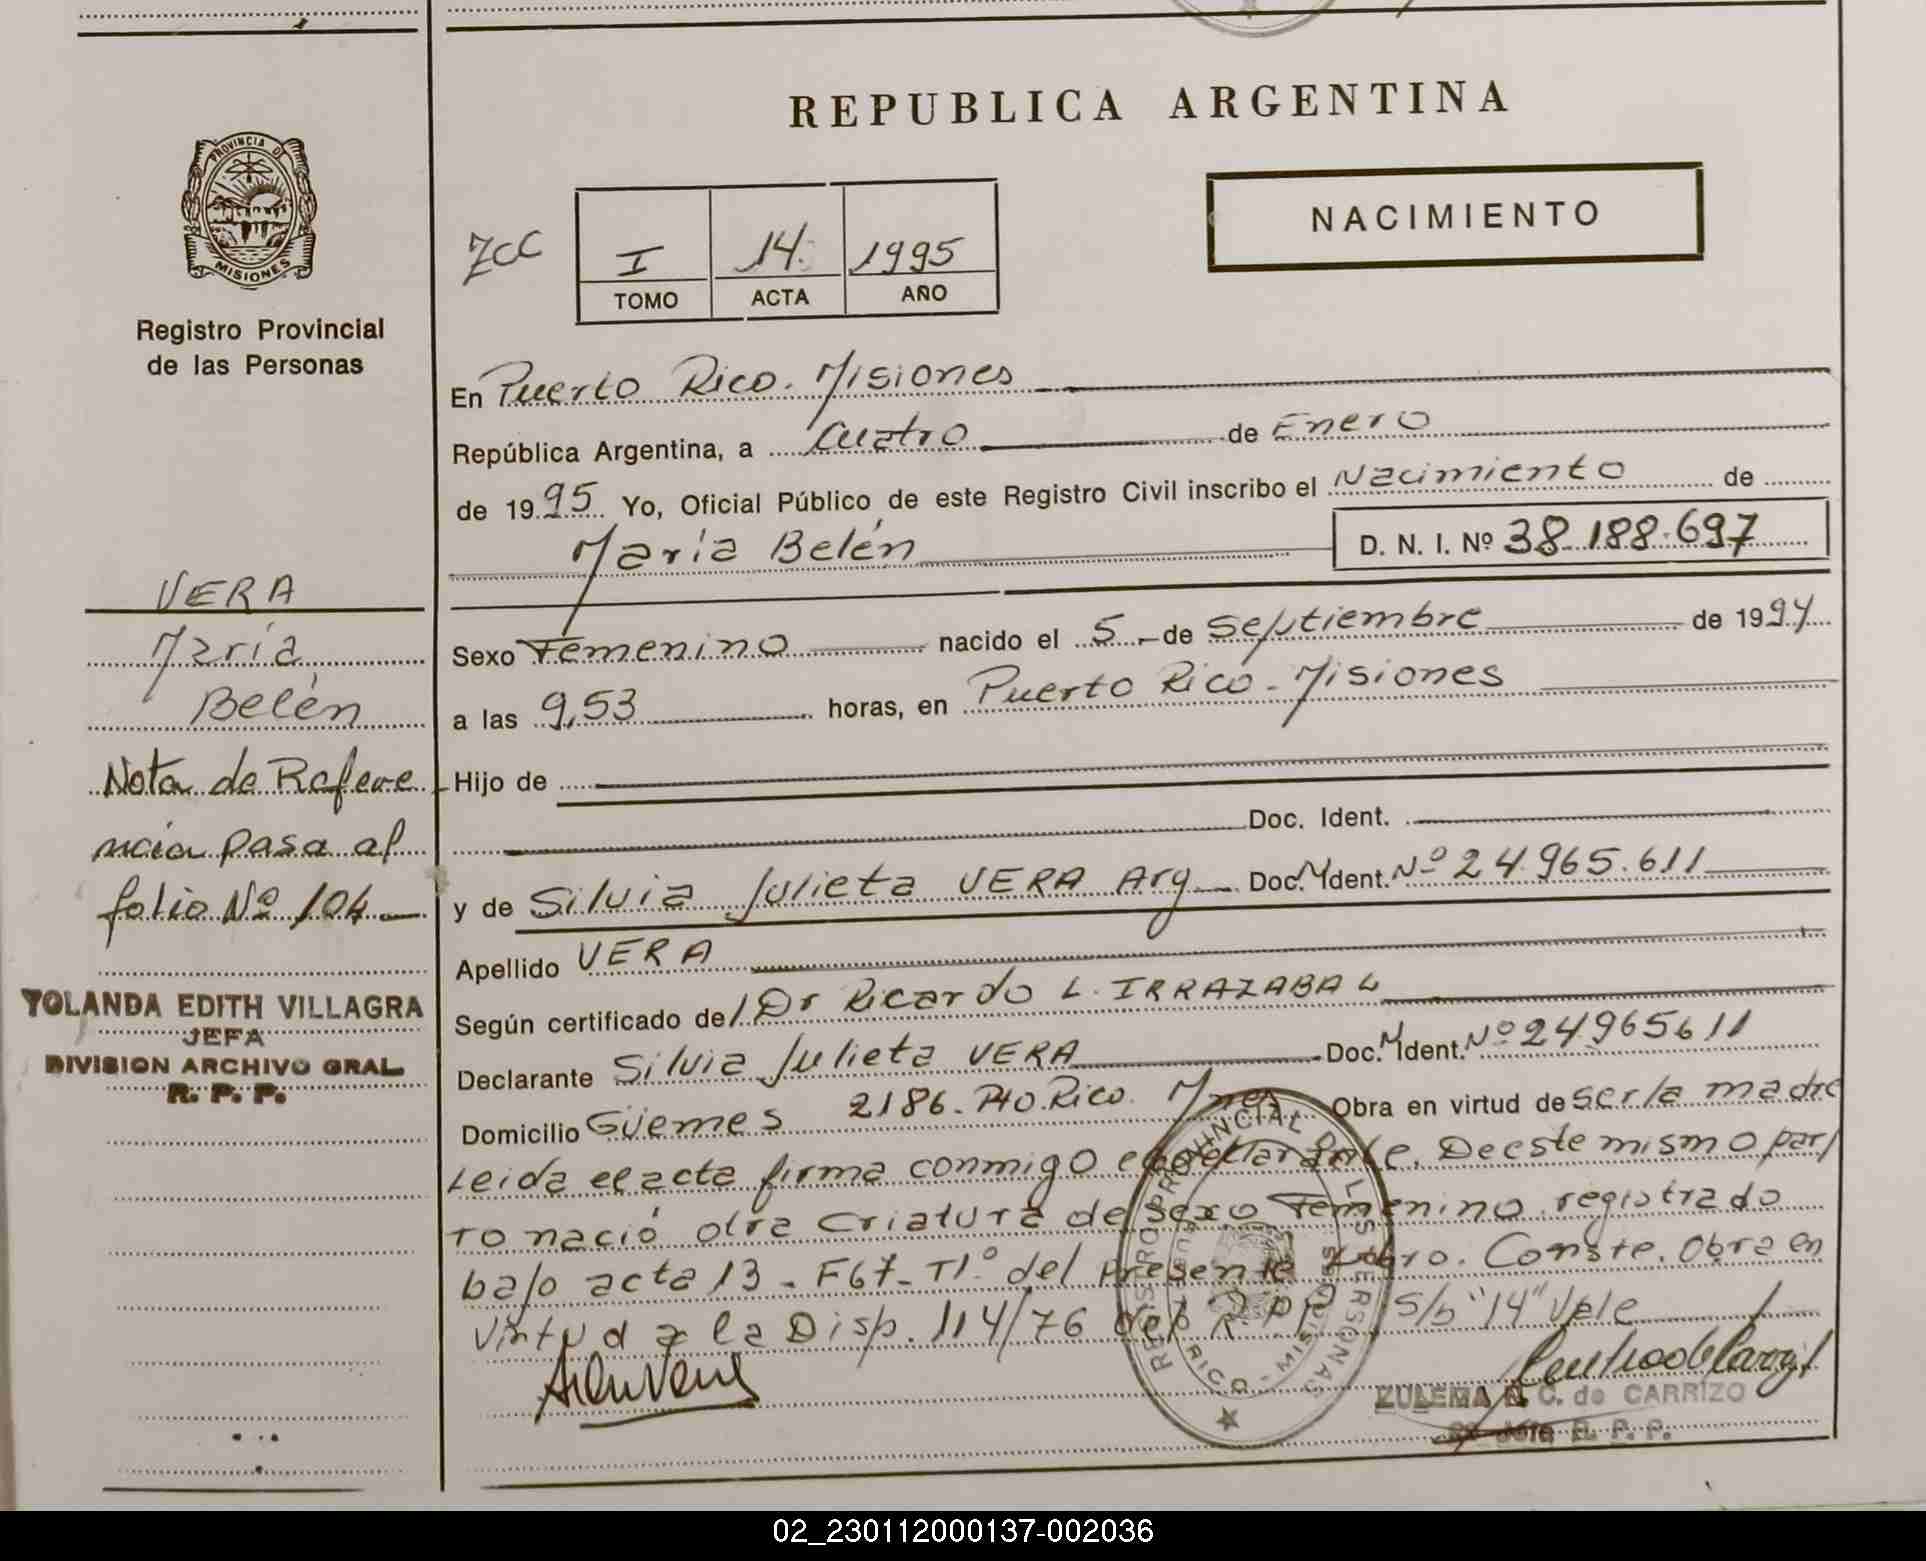 REPUBLICA ARGENTINA
PROVINCIA DE
MISIONES
Registro Provincial
de las Personas
NACIMIENTO
ZCC
I 14 1995
TOMO ACTA AÑO
En Puerto Rico. Misiones
República Argentina, a Cuatro de Enero
de 1995 Yo, Oficial Público de este Registro Civil inscribo el Nacimiento de
María Belén D. N. I. Nº 38.188.697
Sexo Femenino nacido el 5 de Septiembre de 1994
a las 9,53 horas, en Puerto Rico - Misiones
Hijo de
Doc. Ident.
y de Silvia Julieta VERA Arg Doc. Ident. Nº 24.965.611
Apellido VERA
Según certificado del Dr Ricardo L. IRRAZABAL
Declarante Silvia Julieta VERA Doc. Ident. Nº 24965611
Domicilio Güemes 2186. Pto. Rico. Mnes Obra en virtud de ser la madre
Leida el acta firma conmigo el declarante. De este mismo par
to nació otra criatura de sexo Femenino registrado
bajo acta 13 - F67 - T1º del presente Libro. Conste. Obra en
virtud a la Disp. 114/76 del R.P.P. S/b "14" Vale
VERA
María
Belén
Nota de Refere
ncia pasa al
folio Nº 104
YOLANDA EDITH VILLAGRA
JEFA
DIVISION ARCHIVO GRAL.
R. P. P.
REGISTRO PROVINCIAL DE LAS PERSONAS
ZULEMA N. C. de CARRIZO
Jefe R. P. P.
02_230112000137-002036